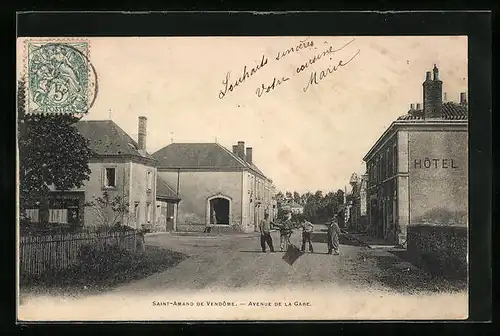 Souhaits sincères
Votre cousine
Marie
5c
HÔTEL
SAINT-AMAND DE VENDÔME. — AVENUE DE LA GARE.